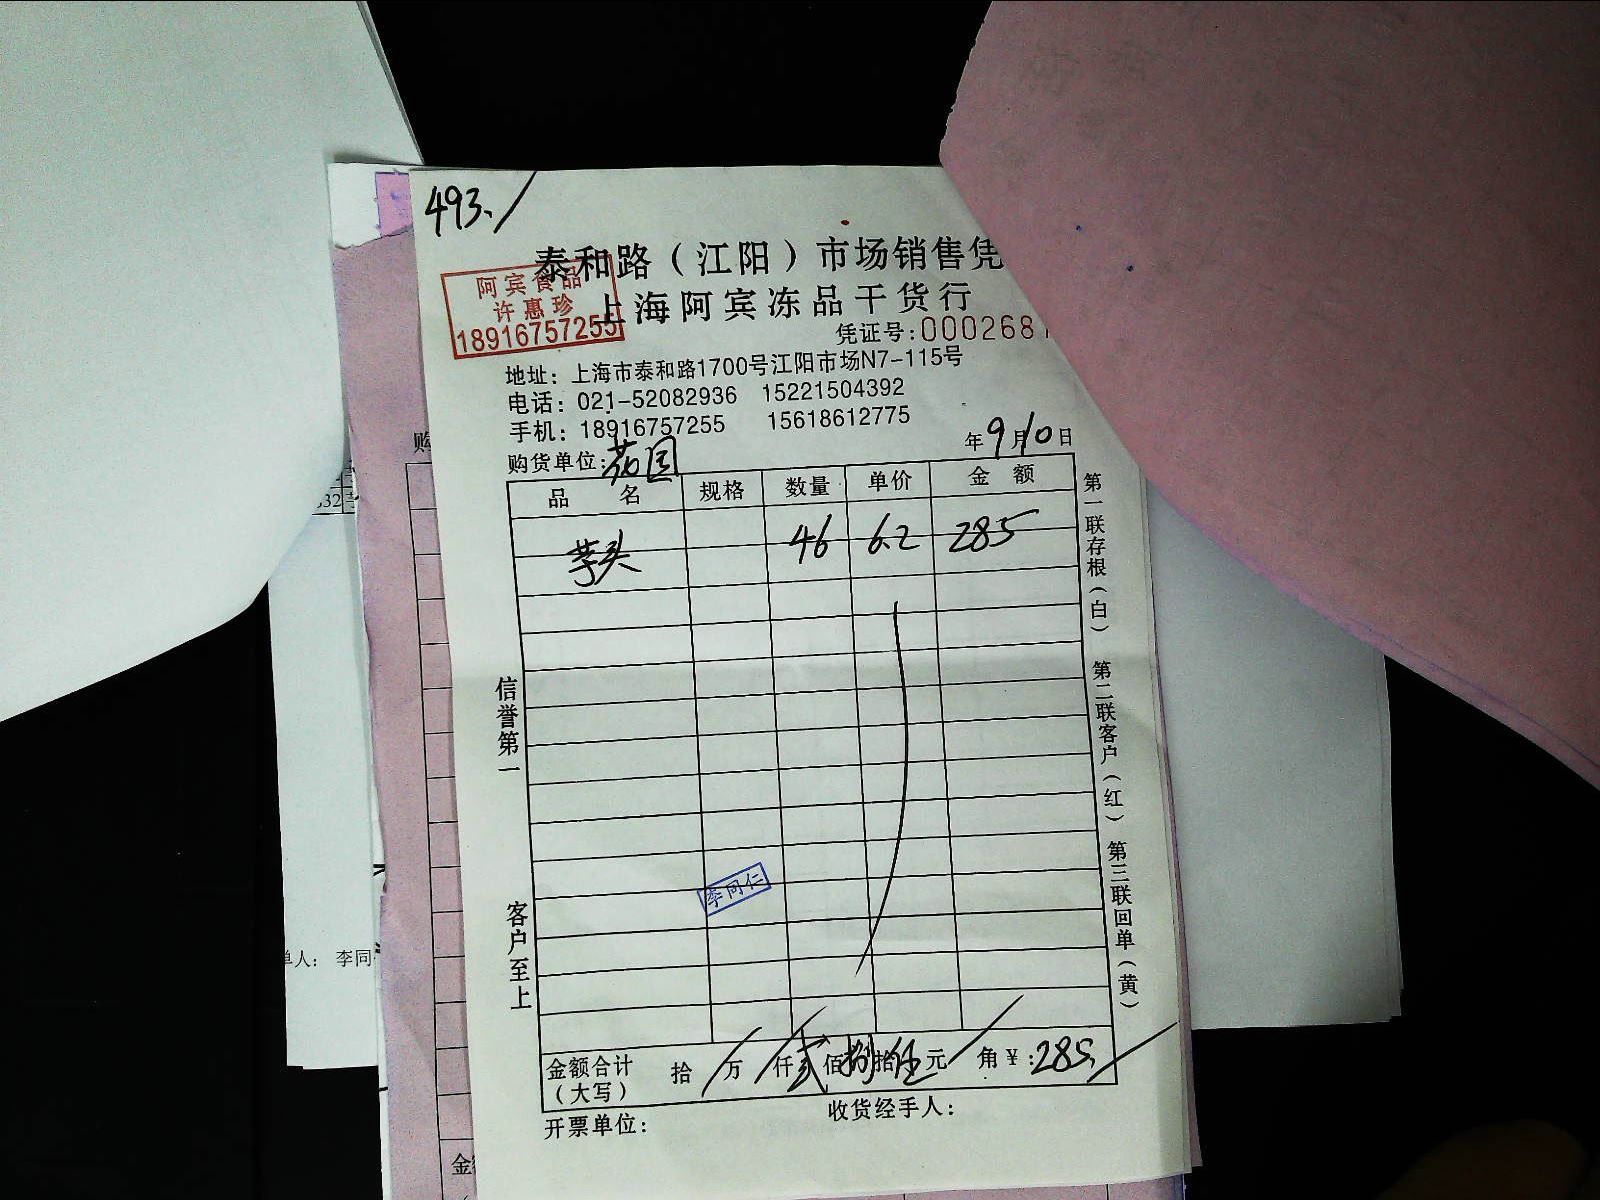 493.
泰和路（江阳）市场销售凭
上海阿宾冻品干货行
阿宾食品
许惠珍
18916757255
凭证号:0002687
地址：上海市泰和路1700号江阳市场N7-115号
电话：021-52082936 15221504392
手机：18916757255 15618612775
购货单位：花园 年9月10日
品名 规格 数量 单价 金额
芋头 46 6.2 285
第一联存根（白） 第二联客户（红） 第三联回单（黄）
信誉第一
客户至上
李同仁
金额合计（大写） 拾/万/仟贰佰捌拾伍元/角￥:285
开票单位： 收货经手人：
购
332
单人： 李同
金